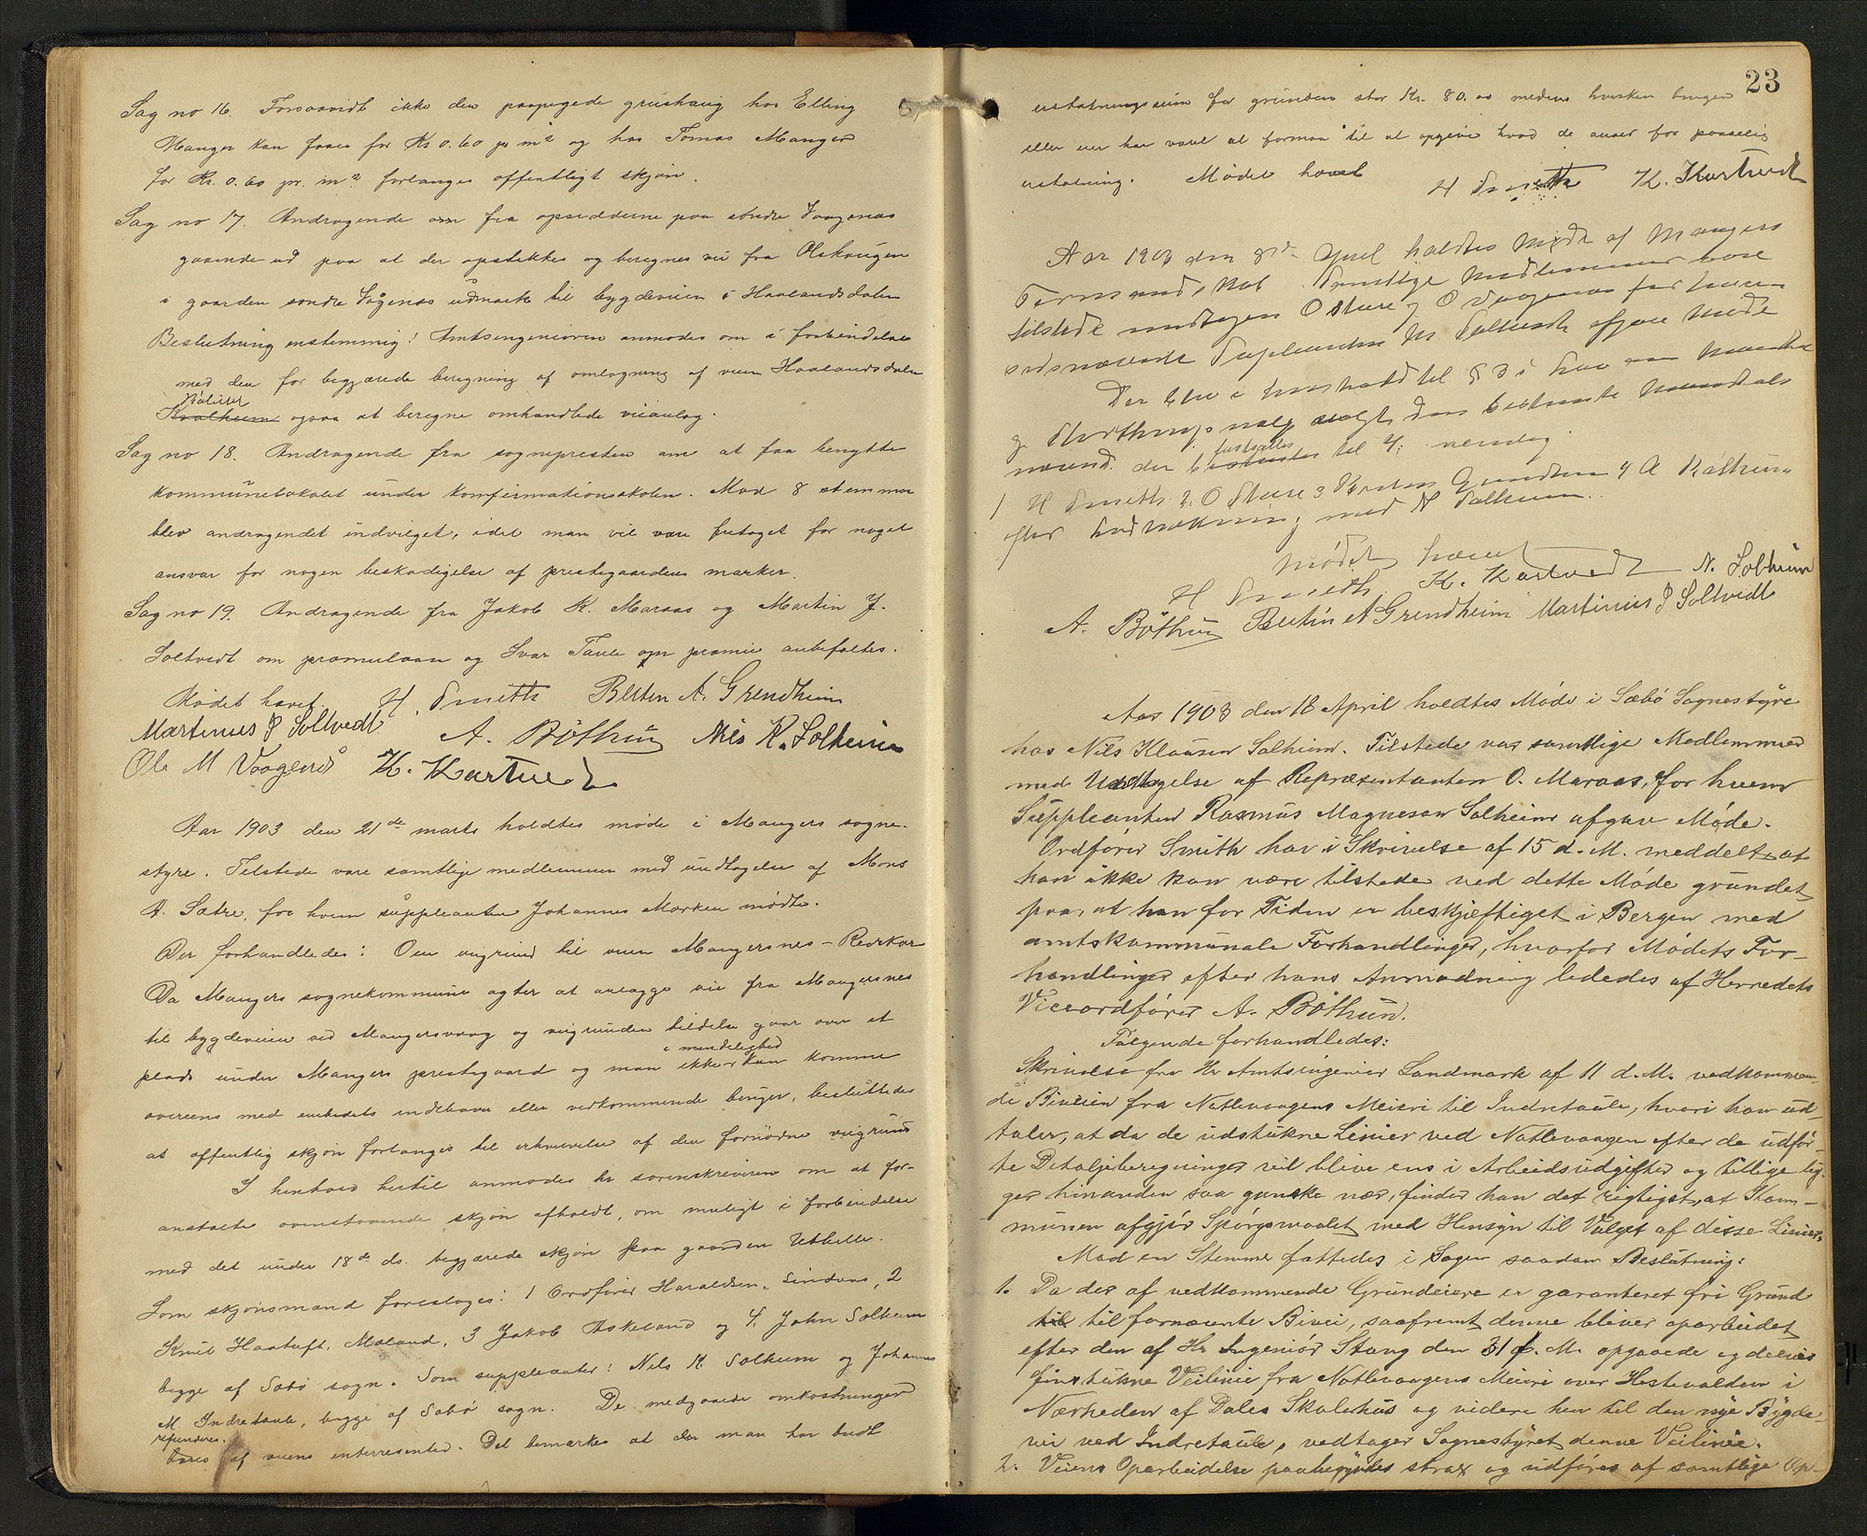 Sag no 16. Forsaavidt ikke den paapegede grushaug hos Elling
Manger kan faaes for Kr 0.60 pr m² og hos Tomas Manger
for Kr. 0.60 pr. m² forlanges offentligt skjøn.
Sag no 17. Andragende om fra opsidderne paa søndre Vaagenæs
gaaende ud paa at der opstikkes og beregnes vei fra Olskaugen
i gaarden søndre Vågenæs udmark til bygdeveien i Haalandsdalen
Beslutning enstemmig: Amtsingeniøren anmodes om i forbindelse
med den før begjærede beregning af omlægning af veien Haalandsdalen
Kvalheim ogsaa at beregne omhandlede veianlæg.
Sag no 18. Andragende fra sognepresten om at faa benytte
kommunelokalet under konfirmationsskolen. Mod 8 stemmer
blev andragendet indvilget, idet man vil være fritaget for noget
ansvar for nogen beskadigelse af prestegaardens marker.
Sag no 19. Andragende fra Jakob K. Maraas og Martin J.
Soltvedt om præmielaan og Ivar Taule om præmie anbefaltes.
Mødet hævet. H. Smith Besten A. Grendheim
Martinus J Soltvedt A. Bøthun Nils K. Solheim
Ole M Vaagenæs K. Kartvedt
Aar 1903 den 21de marts holdtes møde i Mangers sogne-
styre. Tilstede vare samtlige medlemmer med undtagelse af Mons
A. Sætre, for hvem suppleanten Johannes Marken mødte.
Der forhandledes: Om veigrund til veien Mangersnes-Revkar
Da Mangers sognekommune agter at anlægge vei fra Mangersnes
til bygdeveien ved Mangersvaag og veigrunden tildels gaar over et
i mindelighed
plads under Mangers prestegaard og man ikke kan komme
overens med embedets indehaver eller vedkommende bruger, besluttedes
at offentlig skjøn forlanges til erhvervelse af den fornødne veigrund
I henhold hertil anmodes hr sorenskriveren om at for-
anstalte ovenstaaende skjøn afholdt, om muligt i forbindelse
med det under 18de ds. begjærede skjøn paa gaarden Uthelle.
Som skjønsmænd foreslages: 1 Ordfører Haraldsen, Lindaas, 2
Knut Haatuft, Mæland, 3 Jakob Askeland og 4. John Solheim
begge af Sæbø sogn. Som suppleanter: Nils K. Solheim og Johannes
M. Indretaule, begge af Sæbø sogn. De medgaaede omkostninger
refunderes
af veiens interessenter. Det bemærkes at der man har budt
23
erstatningssum for grunden stor Kr. 80.00 medens hverken bruger
eller eier har været at formaa til at opgive hvad de anser for passelig
erstatning. Mødet hævet H Smith K. Kartvedt
Aar 1903 den 8de April holdtes Møde af Mangers
Formandskab. Samtlige Medlemmer vare
tilstede undtagen O Sture og O Vaagenæs for hvem
sidstnævnte Supleanten M Soltvedt afgav Møde
Der blev i henhold til § 3 i Lov om
og Storthingsvalg valgt
fastsattes
nævnd. der bestemtes til 4, nemlig
1 H Smith 2 O Sture 3 Besten Grendheim 4 A Bøthun
efter Lodtrækning med N Solheim.
Mødet hævet
H Smith K. Kartvedt N. Solheim
A. Bøthun Besten A Grendheim Martinus J Soltvedt
Aar 1903 den 18 April holdtes Møde i Sæbø Sognestyre
hos Nils Klausen Solheim. Tilstede var samtlige Medlemmer
med Undtagelse af Repræsentanten O. Maraas, for hvem
Suppleanten Rasmus Magnesen Solheim afgav Møde.
Ordfører Smith har i Skrivelse af 15 d. M. meddelt, at
han ikke kan være tilstede ved dette Møde grundet
paa, at han for Tiden er beskjæftiget i Bergen med
amtskommunale Forhandlinger, hvorfor Mødets For-
handlinger efter hans Anmodning lededes af Herredets
Viceordfører A. Bøthun.
Følgende forhandledes:
Skrivelse fra Hr Amtsingeniør Landmark af 11 d. M. vedkommen-
de Biveien fra Natlevaagens Meieri til Indretaule, hvori han ud-
taler, at da de udstukne Linier ved Natlevaagen efter de udfør-
te Detaljberegninger vil blive ens i Arbeidsudgifter og tillige lig-
ger hinanden saa ganske nær, finder han det rigtigst, at Kom-
munen afgjør Spørgsmaalet med Hensyn til Valget af disse Linier.
Mod en Stemme fattedes i Sagen saadan Beslutning:
1. Da der af vedkommende Grundeiere er garanteret fri Grund
til til fornævnte Bivei, saafremt denne bliver oparbeidet
efter den af Hr Ingeniør Stang den 31 f. M. opgaaede og delvis
finstukne Veilinie fra Natlevaagens Meieri over Hestevalden i
Nærheden af Dales Skolehus og videre hen til den nye Bygde-
vei ved Indretaule, vedtager Sognestyret denne Veilinie.
2. Veiens Oparbeidelse paabegyndes strax og udføres af samtlige Op-